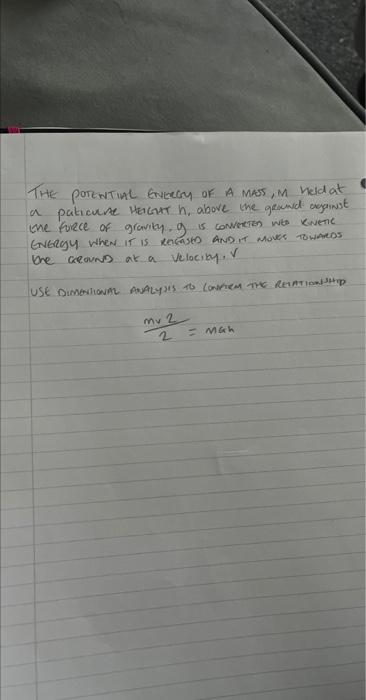 THE POTENTIAL ENERGY OF A MASS, M held at
a paticulre HEIGHT h, above the ground against
the force of gravity, g is CONVERTED INTO KINETIC
ENERGY WHEN IT IS RELEASED AND IT MOVES TOWARDS
the GROUND at a velocity, V
USE DIMENSIONAL ANALYSIS TO CONFIRM THE RELATIONSHIP
mv2/2 = mgh